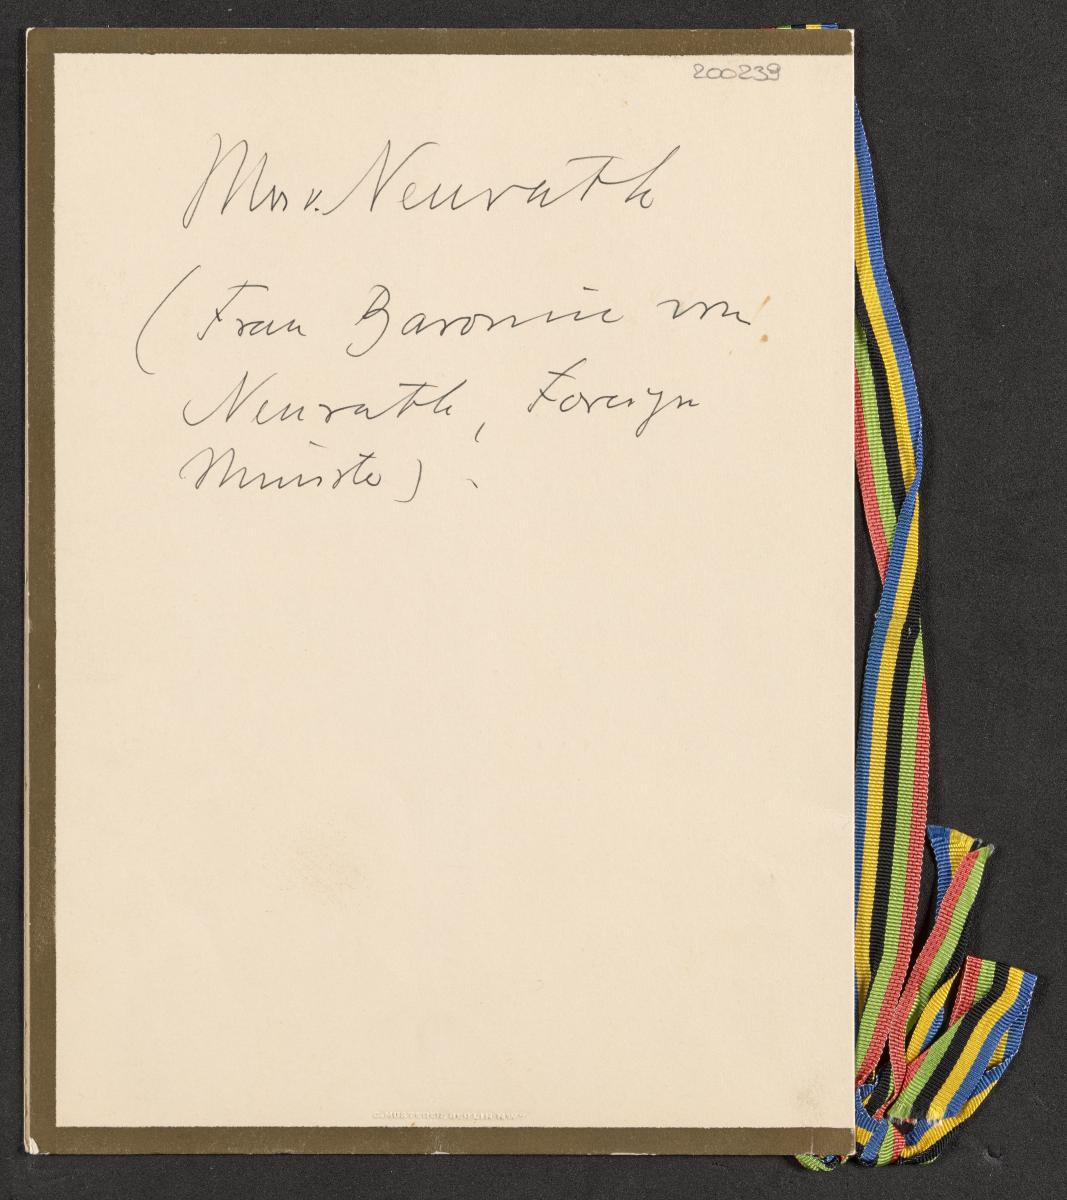 200239
Mrs v. Neurath
(Frau Baronin von
Neurath, Foreign
Minister).
BERLIN NW7